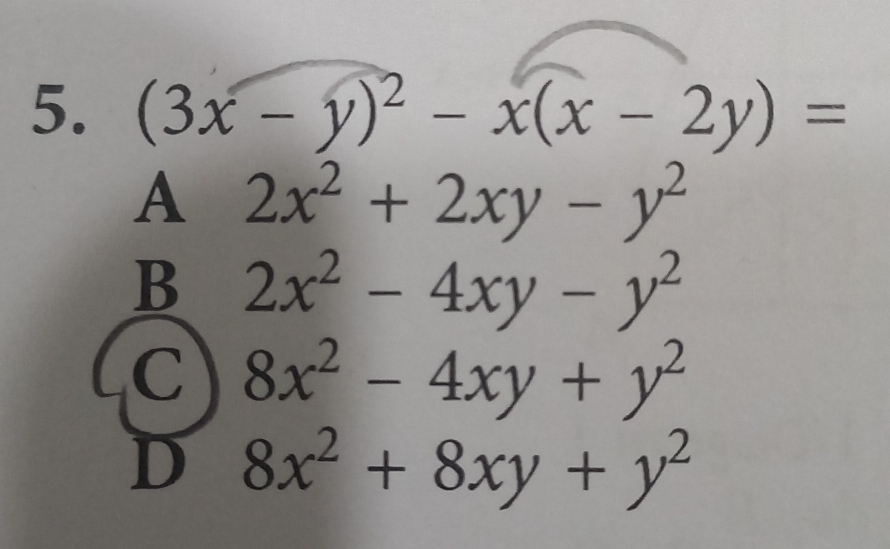 5. (3x − y)² − x(x − 2y) =
A 2x² + 2xy − y²
B 2x² − 4xy − y²
C 8x² − 4xy + y²
D 8x² + 8xy + y²